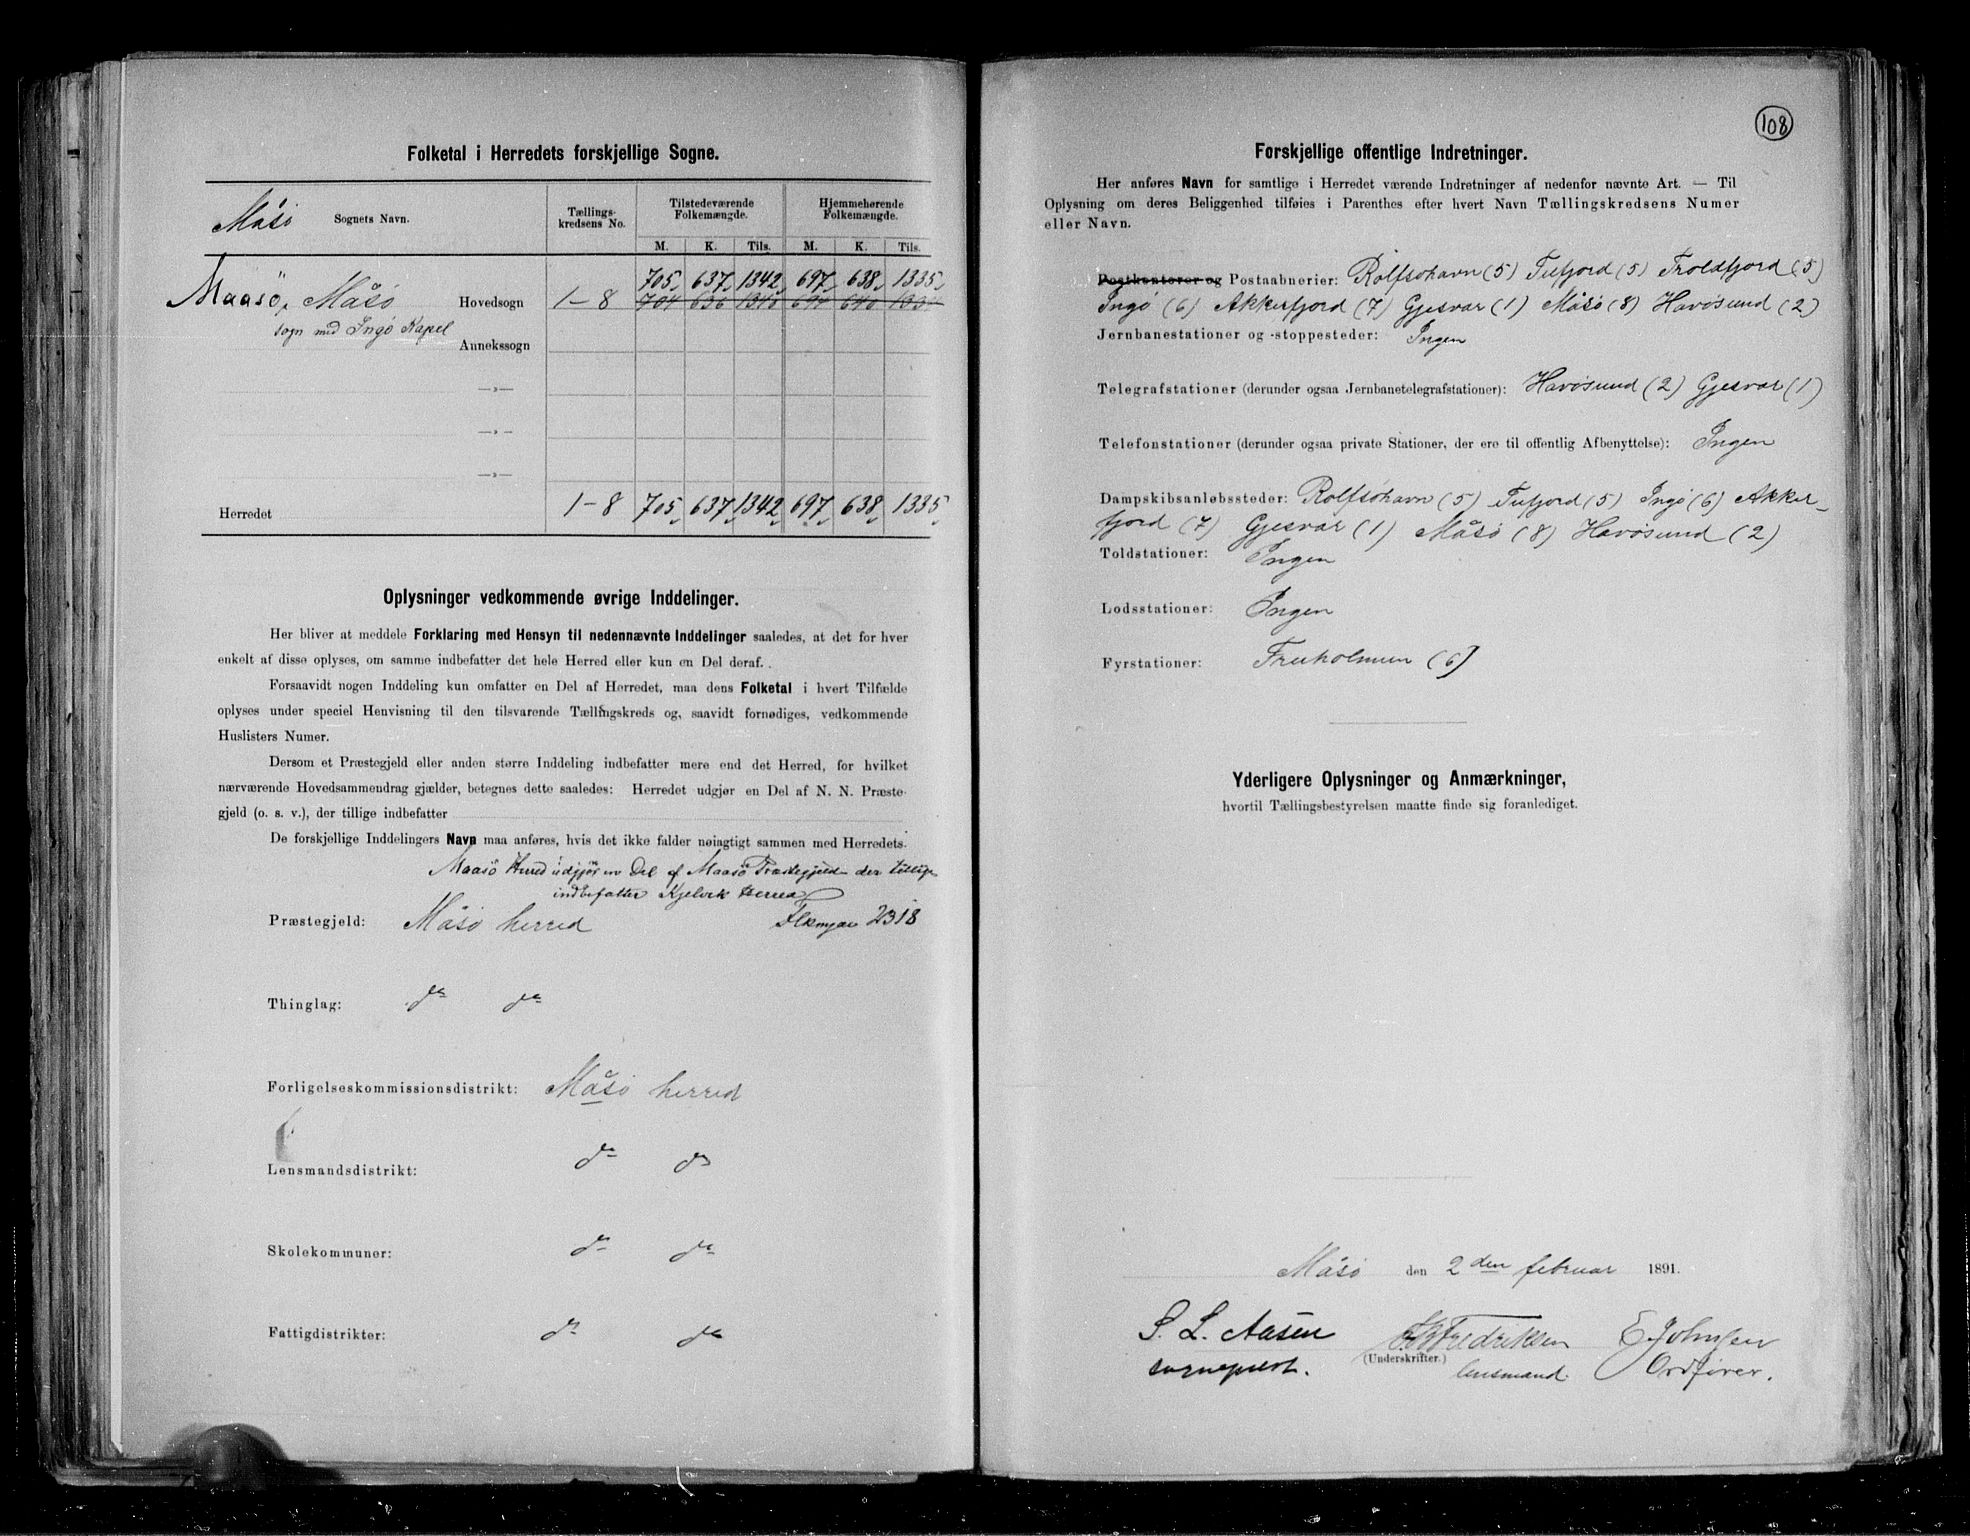 Folketal i Herredets forskjellige Sogne.
Måsö
Sognets Navn.
Tællings-
kredsens No.
Tilstedeværende
Folkemængde.
Hjemmehørende
Folkemængde.
M. K. Tils. M. K. Tils.
705 637 1342 697 638 1335
Maasö, Måsö Hovedsogn 1-8 704 636 1340 694 640 1334
sogn med Ingö Kapel
Annekssogn
—»—
—»—
—»—
Herredet 1-8 705 637 1342 697 638 1335
Oplysninger vedkommende øvrige Inddelinger.
Her bliver at meddele Forklaring med Hensyn til nedennævnte Inddelinger saaledes, at det for hver
enkelt af disse oplyses, om samme indbefatter det hele Herred eller kun en Del deraf.
Forsaavidt nogen Inddeling kun omfatter en Del af Herredet, maa dens Folketal i hvert Tilfælde
oplyses under speciel Henvisning til den tilsvarende Tællingskreds og, saavidt fornødiges, vedkommende
Huslisters Numer.
Dersom et Præstegjeld eller anden større Inddeling indbefatter mere end det Herred, for hvilket
nærværende Hovedsammendrag gjælder, betegnes dette saaledes: Herredet udgjør en Del af N. N. Præste-
gjeld (o. s. v.), der tillige indbefatter
De forskjellige Inddelingers Navn maa anføres, hvis det ikke falder nøiagtigt sammen med Herredets.
Maasö Herred udgjör en Del af Maasö Præstegjeld der tillige
indbefatter Kjelvik Herred
Præstegjeld: Måsö herred 2318
Thinglag: do do
Forligelseskommissionsdistrikt: Måsö herred
Lensmandsdistrikt: do do
Skolekommuner: do do
Fattigdistrikter: do do
108
Forskjellige offentlige Indretninger.
Her anføres Navn for samtlige i Herredet værende Indretninger af nedenfor nævnte Art. — Til
Oplysning om deres Beliggenhed tilføies i Parenthes efter hvert Navn Tællingskredsens Numer
eller Navn.
Postkontorer og Postaabnerier: Rolfsöhavn (5) Tufjord (5) Troldfjord (5)
Ingö (6) Akkerfjord (7) Gjesvar (1) Måsö (8) Havösund (2)
Jernbanestationer og -stoppesteder: Ingen
Telegrafstationer (derunder ogsaa Jernbanetelegrafstationer): Havösund (2) Gjesvar (1)
Telefonstationer (derunder ogsaa private Stationer, der ere til offentlig Afbenyttelse): Ingen
Dampskibsanløbssteder: Rolfsöhavn (5) Tufjord (5) Ingö (6) Akker-
fjord (7) Gjesvar (1) Måsö (8) Havösund (2)
Toldstationer: Ingen
Lodsstationer: Ingen
Fyrstationer: Fruholmen (6)
Yderligere Oplysninger og Anmærkninger,
hvortil Tællingsbestyrelsen maatte finde sig foranlediget.
Måsö den 2den februar 1891.
S. L. Aasen Fredriksen E Johnsen
(Underskrifter.)
sogneprest. lensmand. Ordförer.